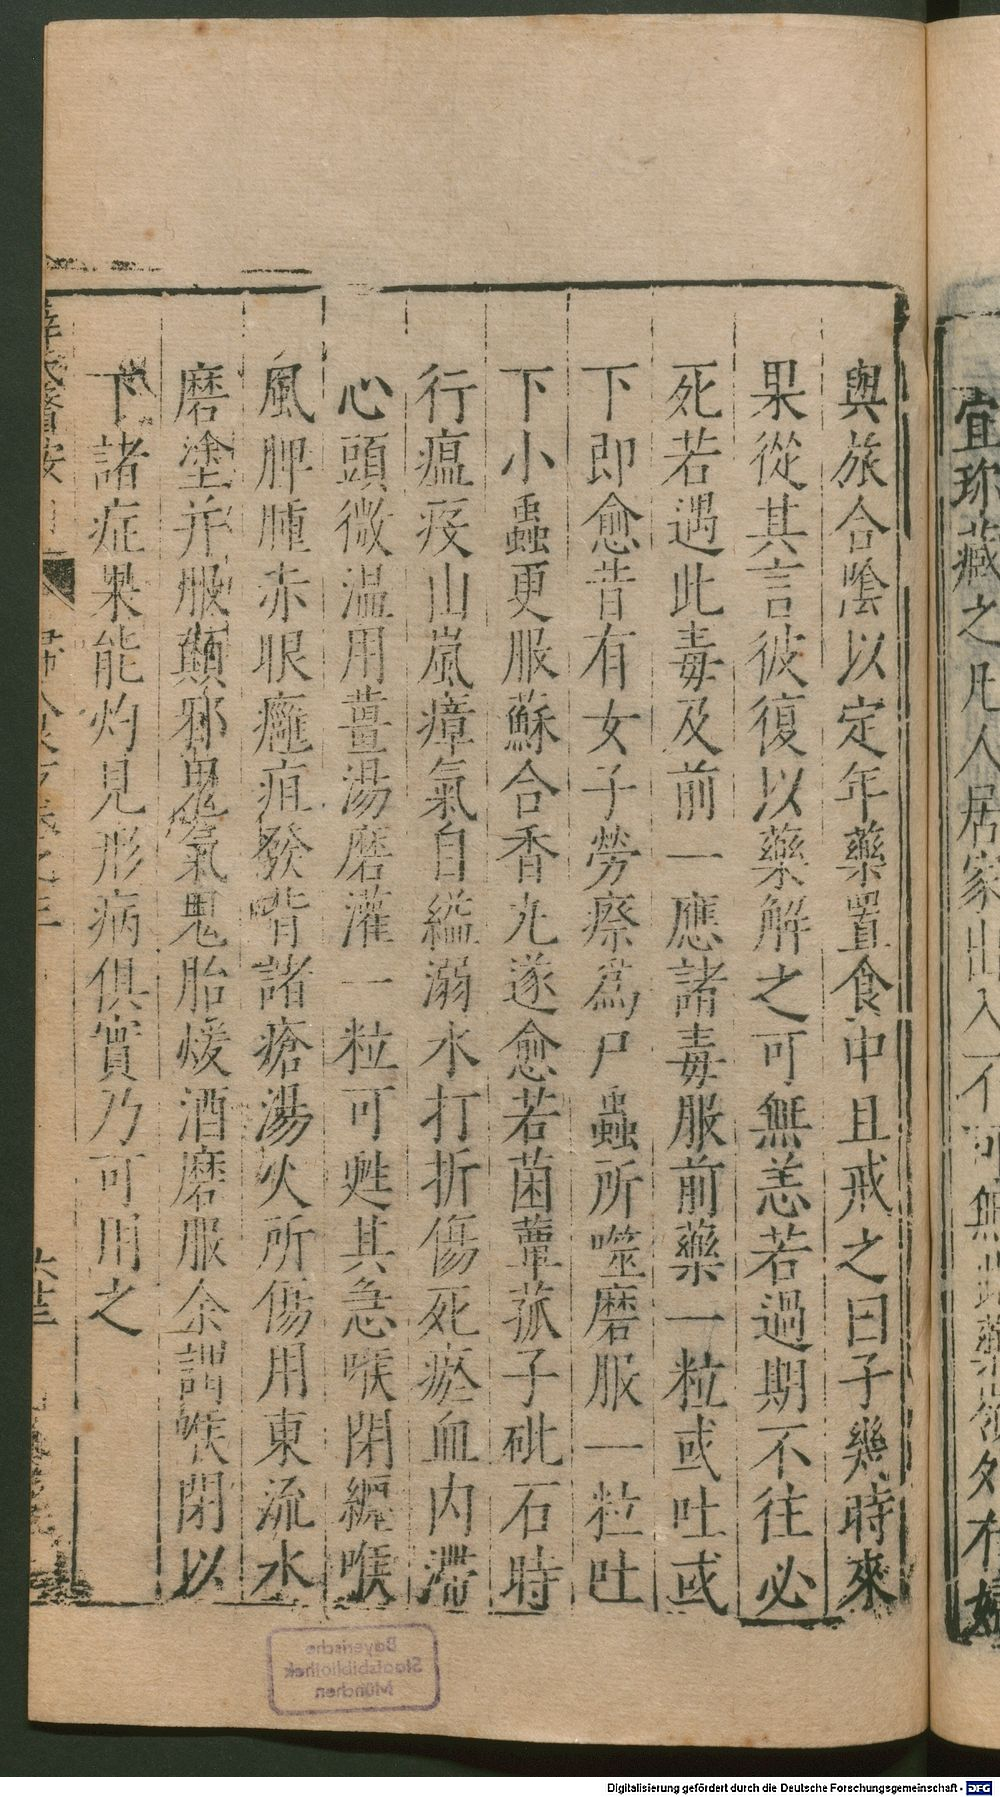 宜珍藏之凡人居家出入不可無此藥嶺外有婦
與旅合陰以定年藥置食中且戒之曰子幾時來
果從其言彼復以藥解之可無恙若過期不往必
死若遇此毒及前一應諸毒服前藥一粒或吐或
下即愈昔有女子勞瘵爲尸蟲所噬磨服一粒吐
下小蟲更服蘇合香丸遂愈若菌蕈菰子砒石時
行瘟疫山嵐瘴氣自縊溺水打折傷死瘀血内滯
心頭微温用薑湯磨灌一粒可甦其急喉閉纏喉
風脾腫赤眼癰疽發背諸瘡湯火所傷用東流水
磨塗并服顛邪鬼氣鬼胎煖酒磨服余謂喉閉以
下諸症果能灼見形病俱實乃可用之
薛氏醫按
婦人良方卷之三
Bayerische
Staatsbibliothek
München
Digitalisierung gefördert durch die Deutsche Forschungsgemeinschaft - DFG